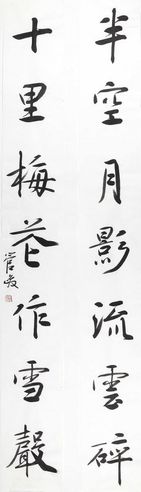 半空月影流雲碎
十里梅花作雪聲
管峻